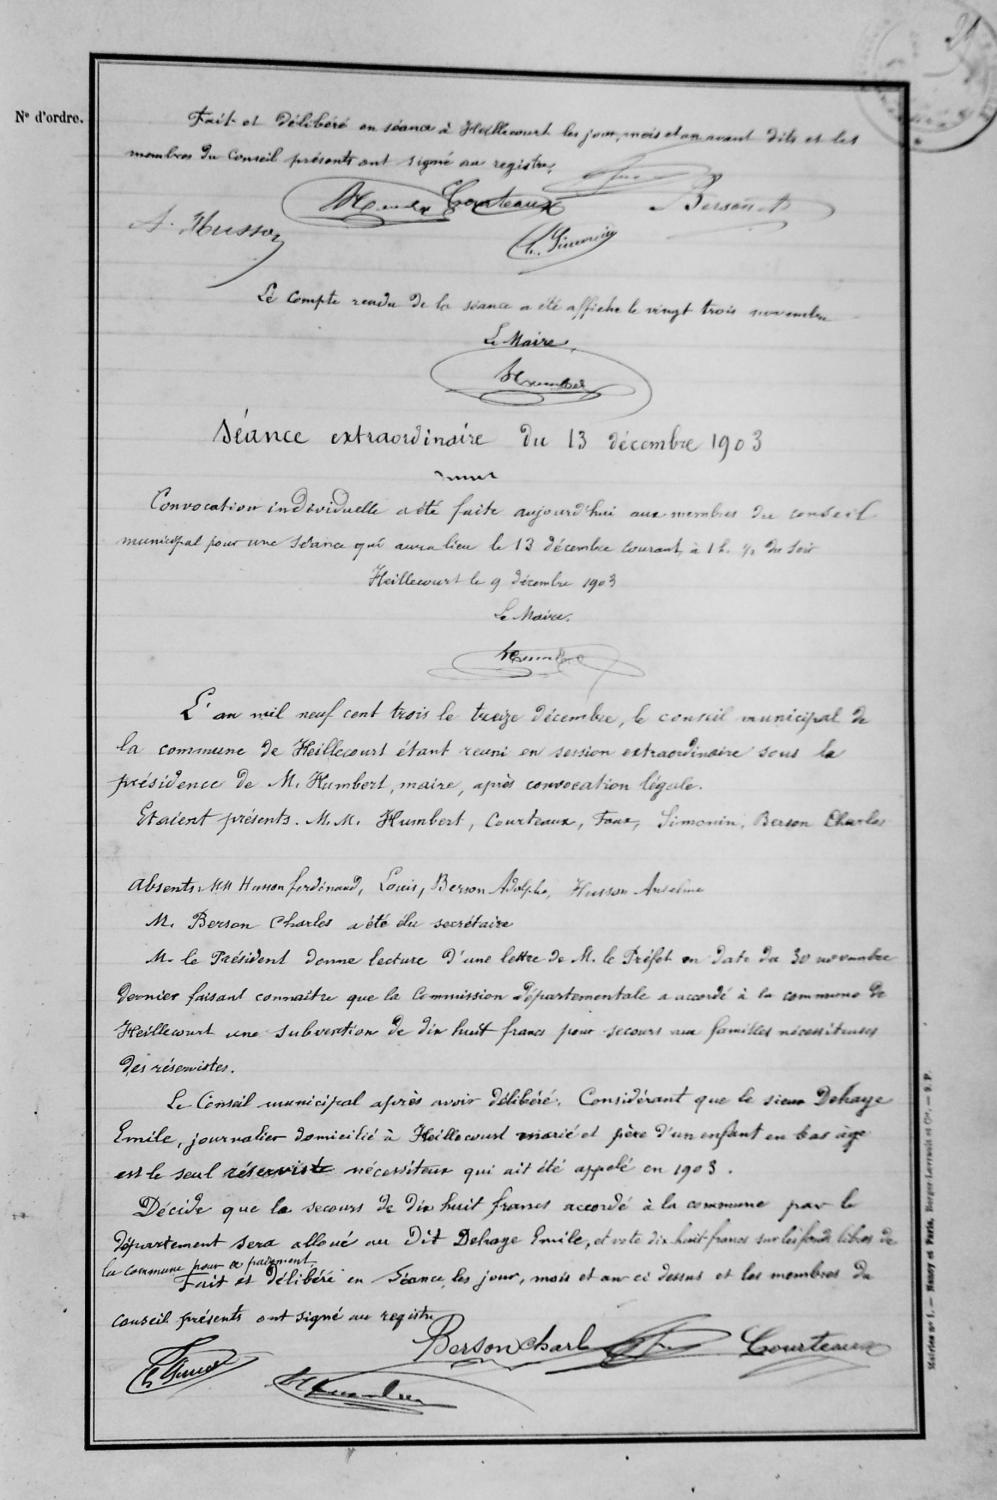 21
N° d'ordre.
Fait et délibéré en séance à Heillecourt les jour, mois et an avant dits et les
membres du Conseil présents ont signé au registre.
Humbert Courteaux Berson
A. Husson
Simonin
Le Compte rendu de la séance a été affiché le vingt trois novembre
Le Maire,
Humbert
Séance extraordinaire du 13 décembre 1903
Convocation individuelle a été faite aujourd'hui aux membres du conseil
municipal pour une séance qui aura lieu le 13 décembre courant, à 1 h. ½ du soir
Heillecourt le 9 décembre 1903
Le Maire.
Humbert
L'an mil neuf cent trois le treize décembre, le conseil municipal de
la commune de Heillecourt étant reuni en session extraordinaire sous la
présidence de M. Humbert, maire, après convocation légale.
Etaient présents. M.M. Humbert, Courteaux, Faux, Simonin, Berson Charles
Absents. MM Husson ferdinand, Louis, Berson Adolphe, Husson Anselme
M. Berson Charles a été élu secrétaire
M. le Président donne lecture d'une lettre de M. le Préfet en date du 30 novembre
dernier faisant connaitre que la Commission départementale a accordé à la commune de
Heillecourt une subvention de dix huit francs pour secours aux familles nécessiteuses
des réservistes.
Le Conseil municipal après avoir délibéré. Considérant que le sieur Dehaye
Emile, journalier domicilié à Heillecourt marié et père d'un enfant en bas âge
est le seul réserviste nécessiteux qui ait été appelé en 1903.
Décide que le secours de dix huit francs accordé à la commune par le
département sera alloué au dit Dehaye Emile, et vote dix huit francs sur les fonds libres de
la commune pour ce paiement.
Fait et délibéré en Séance, les jour, mois et an ci dessus et les membres du
conseil présents ont signé au registre
Berson Charl Courteaux
Humbert
Mairies n° 1. — Nancy et Paris, Berger-Levrault et Cie. — S. P.